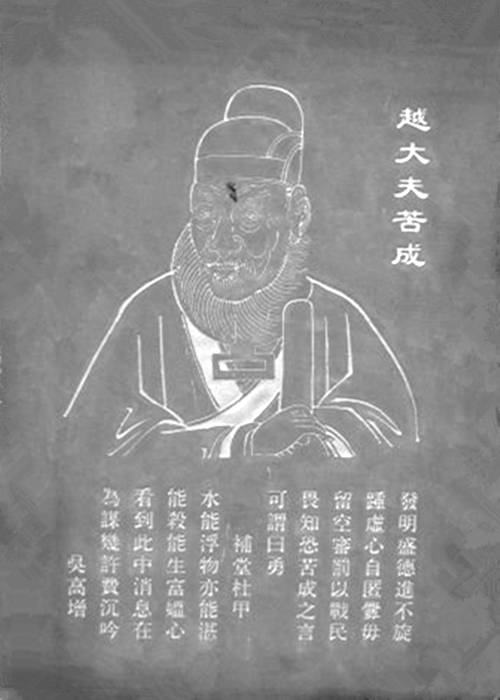 越大夫苦成
發明盛德進不旋
踵虛心自匿釁毋
留空審罰以戰民
畏知恐苦成之言
可謂曰勇
補堂杜甲
水能浮物亦能湛
能殺能生富媼心
看到此中消息在
為謀幾許費沉吟
吳高增